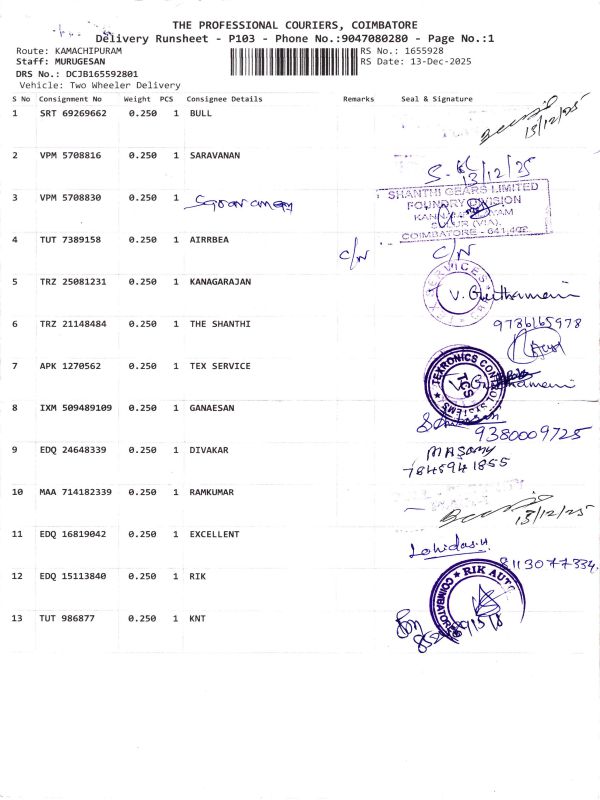 THE PROFESSIONAL COURIERS, COIMBATORE
Delivery Runsheet - P103 - Phone No.:9047080280 - Page No.:1
Route: KAMACHIPURAM RS No.: 1655928
Staff: MURUGESAN RS Date: 13-Dec-2025
DRS No.: DCJB165592801
Vehicle: Two Wheeler Delivery
S No Consignment No Weight PCS Consignee Details Remarks Seal & Signature
1 SRT 69269662 0.250 1 BULL
13/12/25
2 VPM 5708816 0.250 1 SARAVANAN
13/12/25
3 VPM 5708830 0.250 1
SHANTHI GEARS LIMITED
FOUNDRY DIVISION
COIMBATORE - 641 402
4 TUT 7389158 0.250 1 AIRRBEA
C/N C/N
5 TRZ 25081231 0.250 1 KANAGARAJAN
6 TRZ 21148484 0.250 1 THE SHANTHI
9786165978
7 APK 1270562 0.250 1 TEX SERVICE
TEXRONICS CONTROL SYSTEMS
TCS
8 IXM 509489109 0.250 1 GANAESAN
9380009725
9 EDQ 24648339 0.250 1 DIVAKAR
7845941855
10 MAA 714182339 0.250 1 RAMKUMAR
13/12/25
11 EDQ 16819042 0.250 1 EXCELLENT
8113077334
12 EDQ 15113840 0.250 1 RIK
RIK AUTO
COIMBATORE
13 TUT 986877 0.250 1 KNT